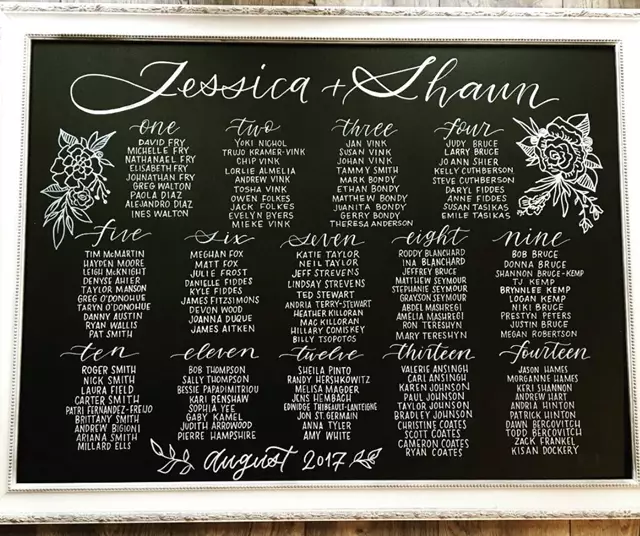 Jessica + Shaun
one
DAVID FRY
MICHELLE FRY
NATHANAEL FRY
ELISABETH FRY
JOHNATHAN FRY
GREG WALTON
PAOLA DIAZ
ALEJANDRO DIAZ
INES WALTON
two
YOKI NICHOL
TRUJO KRAMER-VINK
CHIP VINK
LORLIE ALMELIA
ANDREW VINK
TOSHA VINK
OWEN FOLKES
JACK FOLKES
EVELYN BYERS
MIEKE VINK
three
JAN VINK
SUSAN VINK
JOHAN VINK
TAMMY SMITH
MARK BONDY
ETHAN BONDY
MATTHEW BONDY
JUANITA BONDY
GERRY BONDY
THERESA ANDERSON
four
JUDY BRUCE
LARRY BRUCE
JO ANN SHIER
KELLY CUTHBERSON
STEVE CUTHBERSON
DARYL FIDDES
ANNE FIDDES
SUSAN TASIKAS
EMILE TASIKAS
five
TIM McMARTIN
HAYDEN MOORE
LEIGH McKNIGHT
DENYSE AHIER
TAYLOR MANSON
GREG O'DONOHUE
TARYN O'DONOHUE
DANNY AUSTIN
RYAN WALLIS
PAT SMITH
six
MEGHAN FOX
MATT FOX
JULIE FROST
DANIELLE FIDDES
KYLE FIDDES
JAMES FITZSIMONS
DEVON WOOD
JOANNA DUQUE
JAMES AITKEN
seven
KATIE TAYLOR
NEIL TAYLOR
JEFF STREVENS
LINDSAY STREVENS
TED STEWART
ANDRIA TERRY-STEWART
HEATHER KILLORAN
MAC KILLORAN
HILLARY COMISKEY
BILLY TSOPOTOS
eight
RODDY BLANCHARD
INA BLANCHARD
JEFFREY BRUCE
MATTHEW SEYMOUR
STEPHANIE SEYMOUR
GRAYSON SEYMOUR
ABDEL MASHREGI
AMELIA MASHREGI
RON TERESHYN
MARY TERESHYN
nine
BOB BRUCE
DONNA BRUCE
SHANNON BRUCE-KEMP
TJ KEMP
BRYNNLEE KEMP
LOGAN KEMP
NIKI BRUCE
PRESTYN PETERS
JUSTIN BRUCE
MEGAN ROBERTSON
ten
ROGER SMITH
NICK SMITH
LAURA FIELD
CARTER SMITH
PATRI FERNANDEZ-FREIJO
BRITTANY SMITH
ANDREW BIGIONI
ARIANA SMITH
MILLARD ELLS
eleven
BOB THOMPSON
SALLY THOMPSON
BESSIE PAPADIMITRIOU
KARI RENSHAW
SOPHIA YEE
GABY KAMEL
JUDITH ARROWOOD
PIERRE HAMPSHIRE
twelve
SHEILA PINTO
RANDY HERSHKOWITZ
MELISA MAGDER
JENS HEMBACH
EDWIDGE THIBEAULT-LANTEIGNE
JON ST.GERMAIN
ANNA TYLER
AMY WHITE
thirteen
VALERIE ANSINGH
CARL ANSINGH
KAREN JOHNSON
PAUL JOHNSON
TAYLOR JOHNSON
BRADLEY JOHNSON
CHRISTINE COATES
SCOTT COATES
CAMERON COATES
RYAN COATES
fourteen
JASON HAMES
MORGANNE HAMES
KERI SHANNON
ANDREW HART
ANDRIA HINTON
PATRICK HINTON
DAWN BERCOVITCH
TODD BERCOVITCH
ZACK FRANKEL
KISAN DOCKERY
august 2017